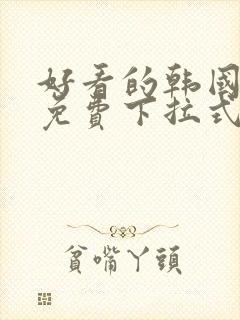 好看的韩国
免費下拉式
貧嘴丫頭